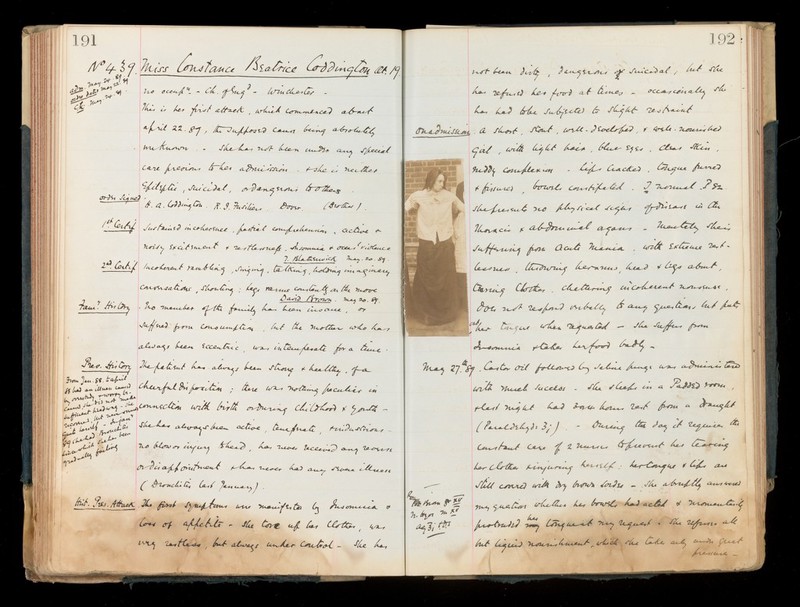 191
No 439. Miss Constance Beatrice Coddington æt. 19
adm May 20. 89
order dated May 20. 89
C.E. May 20. 89
no occupn. - Ch. of Engd - Winchester -
This is her first attack, which commenced about
april 22. 89, the supposed cause being absolutely
unknown. - She has not been under any special
care previous to her admission, & she is neither
Epileptic, suicidal, or dangerous to others.
order signed H. A. Coddington, R. I. Fusiliers Dover. (Brother)
1st Certif Sustained incoherence, partial comprehension, active &
noisy excitement & restlessness, Insomnia & occasl violence
May. 20. 89.
2nd Certif Incoherent rambling, singing, talking, holding imaginary
conversations, shouting; legs, arms constantly on the move
David Brown. May 20. 89.
Famy. History No member of the family has been insane, or
suffered from consumption, but the mother who has
always been eccentric, was intemperate for a time.
Prev. History The patient has always been strong & healthy, of a
cheerful disposition; there was nothing peculiar in
connection with birth or during childhood & youth -
She has always been active, temperate, & industrious -
no blow or injury to head, has never received any
or disappointment & has never had any severe illness
(Bronchitis last January).
From Jan. 88 to april
88 had an illness caused
by
did not make
sufficient headway - she
recovered, but
herself - In Jany
89 she had Bronchitis
since which she has been
gradually failing
Hist. Pres. Attack The first symptoms were manifested by Insomnia &
loss of appetite - She tore up her clothes, was
very restless, but always under control - She has
192
not been dirty, dangerous or suicidal, but she
has refused her food at times - occasionally she
has had to be subjected to slight restraint.
on admission A short, stout, well-developed, & well-nourished
girl, with light hair, blue eyes, clear skin,
ruddy complexion - Lips cracked, tongue furred
& fissured, bowels constipated. T normal P 82
She presents no physical signs of disease in the
thoracic & abdominal organs - Mentally she is
suffering from Acute Mania, with extreme rest-
lessness, throwing her arms, head & legs about,
tearing clothes, chattering incoherent nonsense.
Does not respond verbally to any questions but puts
out her tongue when requested - She suffers from
Insomnia & takes her food badly -
May 27th 89. Castor oil followed by saline purge was administered
with much success. She sleeps in a Padded room,
& last night had seven hours rest from a draught
(Paraldehyde ʒi) - During the day it requires the
constant care of 2 nurses to prevent her tearing
her clothes & injuring herself: her tongue & lips are
still covered with dry brown sordes - She abruptly answered
my question whether her bowels had acted & momentarily
protruded her tongue at my request - She refuses all
but liquid nourishment, which she takes only under great
pressure -